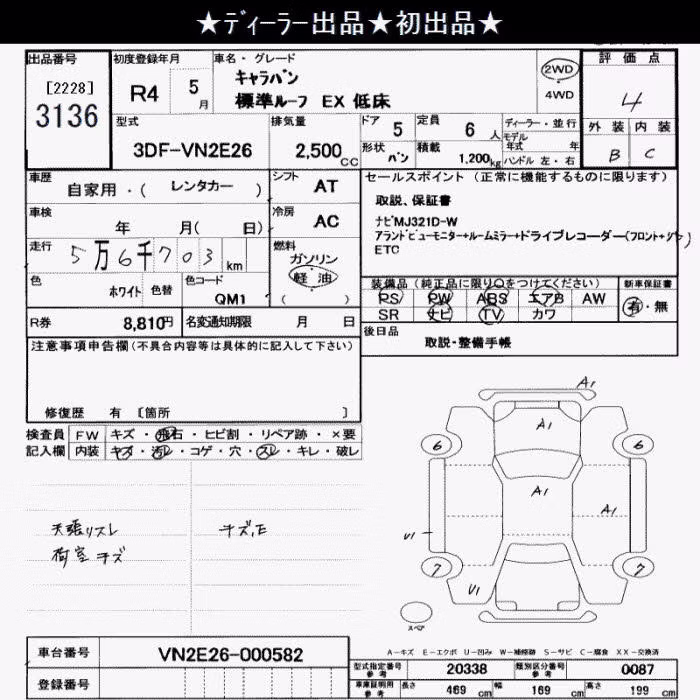 ★ディーラー出品★初出品★
出品番号
[2228]
3136
初度登録年月
R4 5月
車名・グレード
キャラバン
標準ルーフ EX 低床
2WD
4WD
評価点
4
外装 内装
B C
型式
3DF-VN2E26
排気量
2,500cc
ドア 5
定員 6人
形状 バン
積載 1,200kg
ディーラー・並行
モデル
年式 年
ハンドル 左・右
車歴
自家用・( レンタカー )
シフト AT
車検
年 月( 日)
冷房 AC
走行
5万6千703km
燃料
ガソリン
軽油
( )
色
ホワイト 色替
色コード
QM1
R券 8,810円
名変通知期限 月 日
セールスポイント (正常に機能するものに限ります)
取説、保証書
ナビMJ321D-W
アラウンドビューモニター+ルームミラー+ドライブレコーダー(フロント+リヤ)
ETC
装備品(純正品に限り○をつけてください)
PS PW ABS エアB AW
SR ナビ TV カワ
新車保証書
有・無
後日品
取説・整備手帳
注意事項申告欄(不具合内容等は具体的に記入して下さい)
修復歴 有 [箇所 ]
検査員
記入欄
FW キズ・飛石・ヒビ割・リペア跡・×要
内装 キズ・汚レ・コゲ・穴・スレ・キレ・破レ
天張リスレ
荷室キズ
キズ,E
A1
A1
6 6
A1
A1
U1
7 7
U1
スペア
A-キズ E-エクボ U-凹み W-補修跡 S-サビ C-腐食 XX-交換済
車台番号
VN2E26-000582
登録番号
型式指定番号
参考
20338
類別区分番号
参考
0087
車庫証明用
参考
長さ 469cm
幅 169cm
高さ 199cm